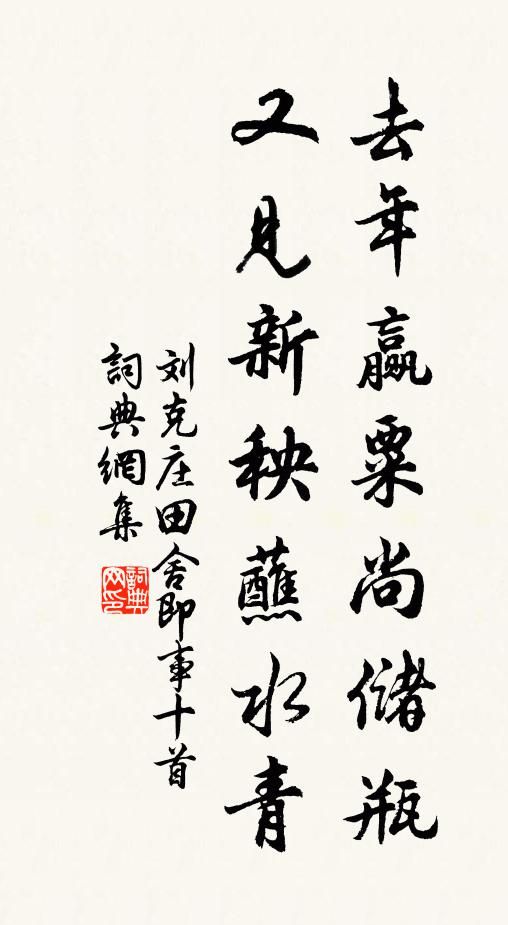 去年贏粟尚儲瓶
又見新秧蘸水青
刘克庄田舍即事十首
詞典網集
詞典网印